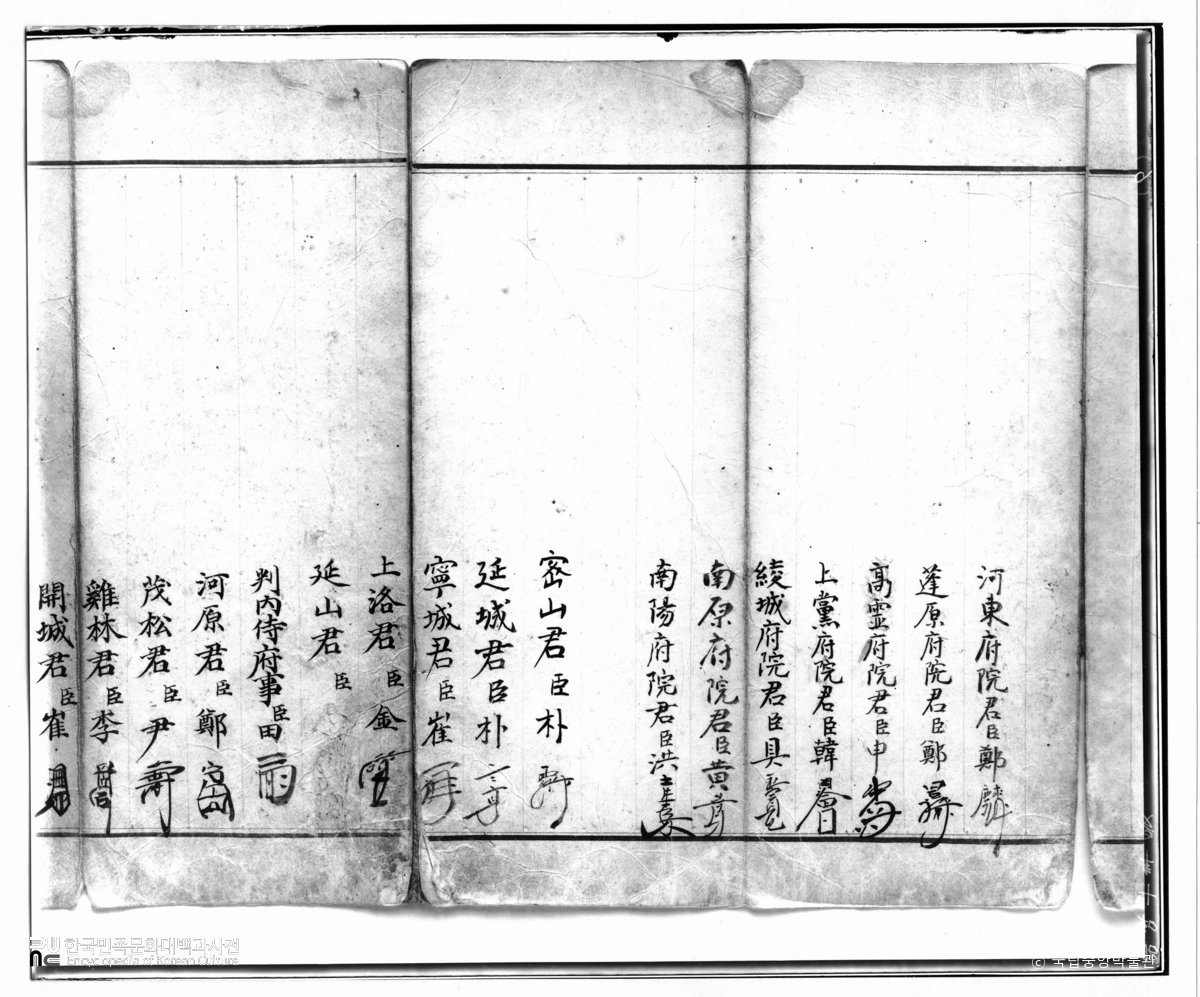 河東府院君臣鄭麟
蓬原府院君臣鄭
高靈府院君臣申
上黨府院君臣韓
綾城府院君臣具
南原府院君臣黃守
南陽府院君臣洪
密山君臣朴
延城君臣朴
寧城君臣崔
上洛君臣金
延山君臣
判內侍府事臣田
河原君臣鄭
茂松君臣尹
雞林君臣李
開城君臣崔
한국민족문화대백과사전
Encyclopedia of Korean Culture
© 국립중앙박물관